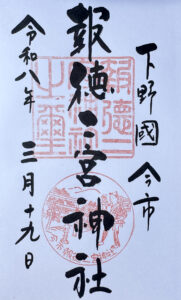 下野國 今市
報徳二宮神社
令和八年 三月十九日